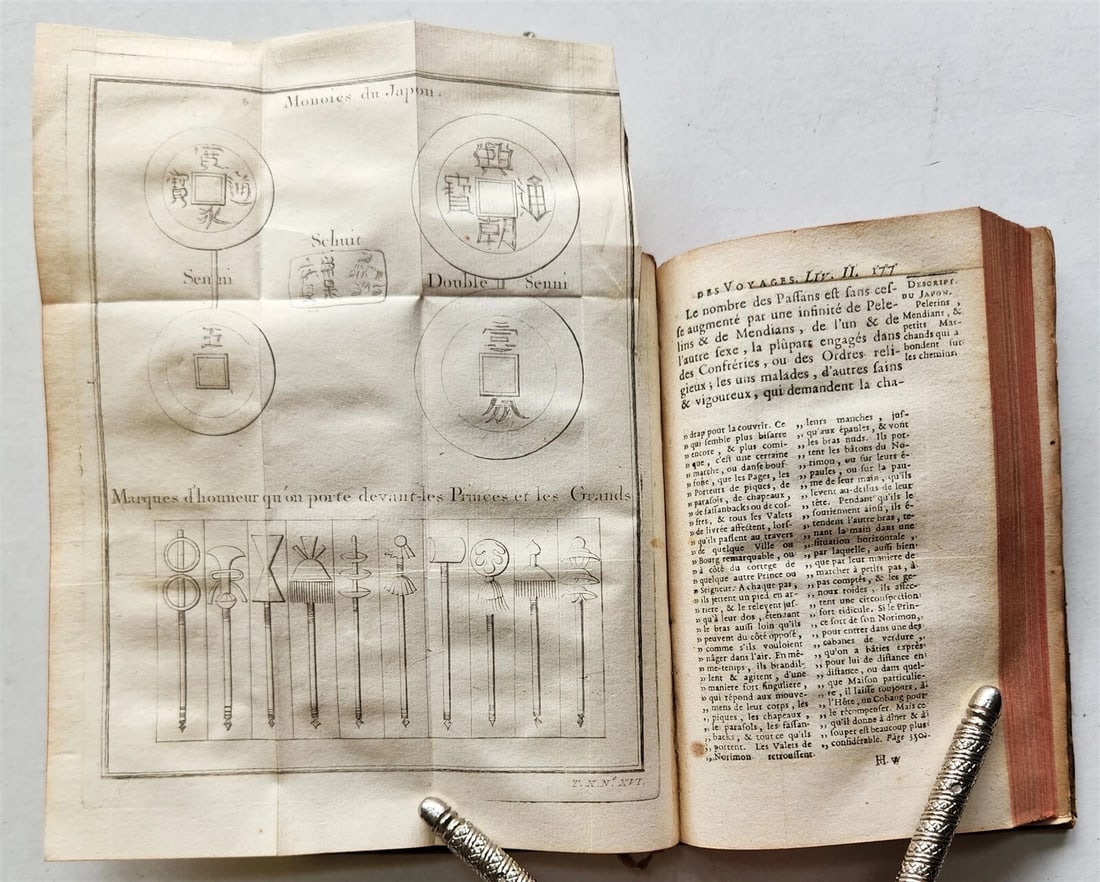 Monoies du Japon.
寛
寶 通
永
興
寶 通
朝
Schuit
Senni
Double Senni
五
壹
分
Marques d'honneur qu'on porte devant les Princes et les Grands
T. X. N.º XVI.
DES VOYAGES. Liv. II. 177
Le nombre des Passans est sans ces-
se augmenté par une infinité de Pele-
lins & de Mendians, de l'un & de
l'autre sexe, la plûpart engagés dans
des Confréries, ou des Ordres reli-
gieux; les uns malades, d'autres sains
& vigoureux, qui demandent la cha-
DESCRIPT.
DU JAPON.
Pelerins,
Mendians, &
petits Mar-
chands qui a
bondent sur
les chemins
„ drap pour la couvrir. Ce
„ qui semble plus bisarre
„ encore, & plus comi-
„ que, c'est une certaine
„ marche, ou danse bouf-
„ fone, que les Pages, les
„ Porteurs de piques, de
„ parasols, de chapeaux,
„ de fassanbacks ou de cof-
„ fres, & tous les Valets
„ de livrée affectent, lors-
„ qu'ils passent au travers
„ de quelque Ville ou
„ Bourg remarquable, ou
„ à côté du cortege de
„ quelque autre Prince ou
„ Seigneur. A chaque pas,
„ ils jettent un pied en ar-
„ riere, & le relevent jus-
„ qu'à leur dos, étendant
„ le bras aussi loin qu'ils
„ peuvent du côté opposé,
„ comme s'ils vouloient
„ nâger dans l'air. En mê-
„ me-temps, ils brandil-
„ lent & agitent, d'une
„ maniere fort singuliere,
„ qui répond aux mouve-
„ mens de leur corps, les
„ piques, les chapeaux,
„ le parasols, les fassan-
„ backs, & tout ce qu'ils
„ portent. Les Valets de
„ Norimon retroussent
„ leurs manches, jus-
„ qu'aux épaules, & vont
„ les bras nuds. Ils por-
„ tent les bâtons du No-
„ rimon, ou sur leurs é-
„ paules, ou sur la pau-
„ me de leur main, qu'ils
„ levent au-dessus de leur
„ tête. Pendant qu'ils le
„ soutiennent ainsi, ils é-
„ tendent l'autre bras, te-
„ nant la main dans une
„ situation horizontale,
„ par laquelle, aussi bien
„ que par leur maniere de
„ marcher à petits pas, à
„ pas comptés, & les ge-
„ noux roides, ils affec-
„ tent une circonspection
„ fort ridicule. Si le Prin-
„ ce sort de son Norimon,
„ pour entrer dans une des
„ cabanes de verdure,
„ qu'on a bâties exprès
„ pour lui de distance en
„ distance, ou dans quel-
„ que Maison particulie-
„ re, il laisse toujours, à
„ l'Hôte, un Cobang pour
„ le récompenser. Mais ce
„ qu'il donne à dîner & à
„ souper est beaucoup plus
„ considérable. Page 330.